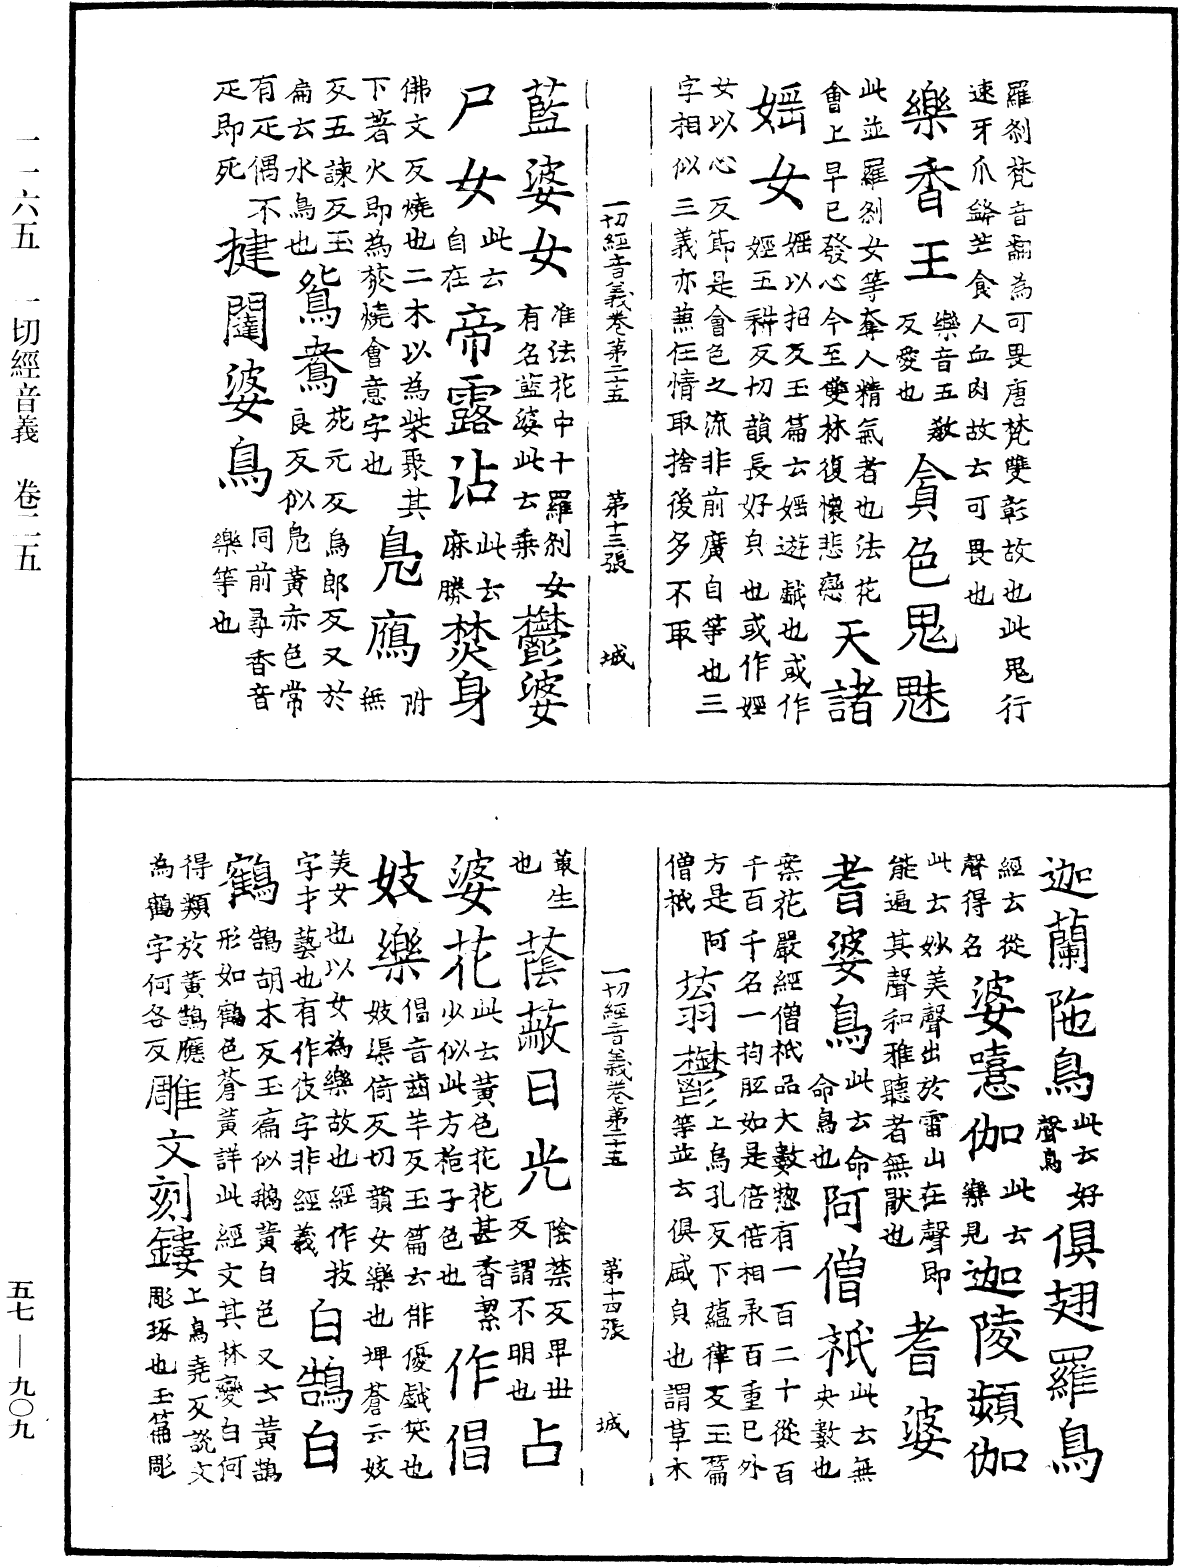 羅剎梵音翻為可畏唐梵雙彰故也此鬼行
速牙爪鋒芒食人血肉故云可畏也
樂香王樂音五教反愛也貪色鬼魅
此並羅剎女等奪人精氣者也法花會上早已發心今至雙林復懷悲戀天諸
婬女婬以招反玉篇云婬遊戲也或作婬五耕反切韻長好皃也或作婬
女以心反節是會色之流非前廣自等也三
字相似三義亦兼任情取捨後多不取
一切經音義卷第二十五 第十三張 城
藍婆女准法花中十羅剎女有名藍婆此云乘欝婆
尸女此云自在帝露沾此云麻勝焚身
佛文反燒也二木以為柴聚其下著火即為焚燒會意字也鳧鴈附無
反五諫反玉篇云水鳥也鴛鴦菀元反烏郎反又於良反似鳧黃赤色常
有疋偶不疋即死揵闥婆鳥同前尋香音樂等也
迦蘭陁鳥此云好聲鳥俱翅羅鳥
經云從聲得名婆嘻伽此云樂見迦陵頻伽
此云妙美聲出於雷山在聲即能遍其聲和雅聽者無猒也耆婆
耆婆鳥此云命命鳥也阿僧祇此云無央數也
案花嚴經僧祇品大數惣有一百二十從百
千百千名一拘胝如是倍倍相承百重已外
方是阿僧祇蓊欝上烏孔反下蘊律反玉篇等並云俱盛皃也謂草木
一切經音義卷第二十五 第十四張 城
叢生也蔭蔽日光陰禁反畢世反謂不明也占
婆花此云黃色花花甚香絜少似此方梔子色也作倡
妓樂倡音齒羊反玉篇云俳優戲笑也妓渠倚反切韻女樂也埤蒼云妓
美女也以女為樂故也經作技字才藝也有作伎字非經義白鵠白
鶴鵠胡木反玉扁似鵝黃白色又云黃鵠形如鶴色蒼黃詳此經文其林變白何
得類於黃鵠應為鶴字何各反雕文刻鏤上鳥堯反說文彫琢也玉篇彫
一一六五 一切經音義 卷二五
五七——九〇九